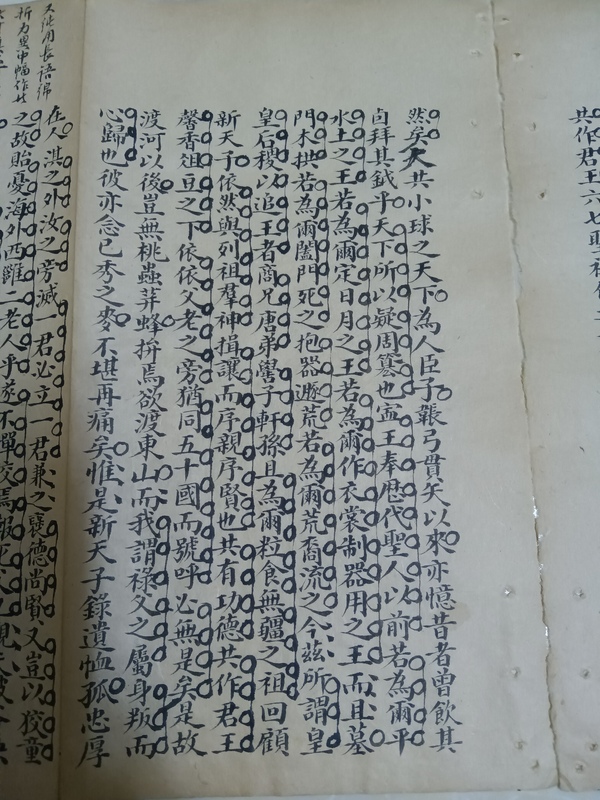 共作君王六七
然矣夫共小球之天下為人臣子張弓貫矢以來亦憶昔者曾飲其
卣拜其鉞乎天下所以疑周簒也寍王奉歷代聖人以前若為爾平
水土之王若為爾定日月之王若為爾作衣裳制器用之王而且墓
門木拱若為爾闔門死之抱器遯荒若為爾荒裔流之今茲所謂皇
皇后稷以追王者商兄唐弟嚳子軒孫且為爾粒食無疆之祖回顧
新天子依然與列祖羣神揖讓而序親序賢也共有功德共作君王
馨香俎豆之下依依父老之旁猶同五十國而號呼必無是矣是故
渡河以後豈無桃蟲荓蜂拚焉欲渡東山而我謂祿父之屬身叛而
心歸也彼亦念已秀之麥不堪再痛矣惟是新天子錄遺恤孤忠厚
在人淇之外汝之旁滅一君必立一君兼之襄德尚賢又豈以狡童
之故貽憂海外西雝二老人乎不憚
用長語